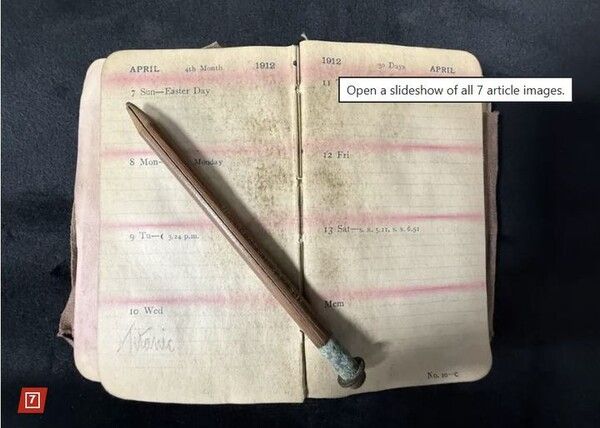 APRIL 4th Month. 1912
7 Sun—Easter Day
8 Mon— Monday
9 Tu—☾ 3.24 p.m.
10 Wed
Titanic
1912 30 Days APRIL
11
Open a slideshow of all 7 article images.
12 Fri
13 Sat—S. R. 5.11, S. S. 6.51
Mem
No. 10—C
7